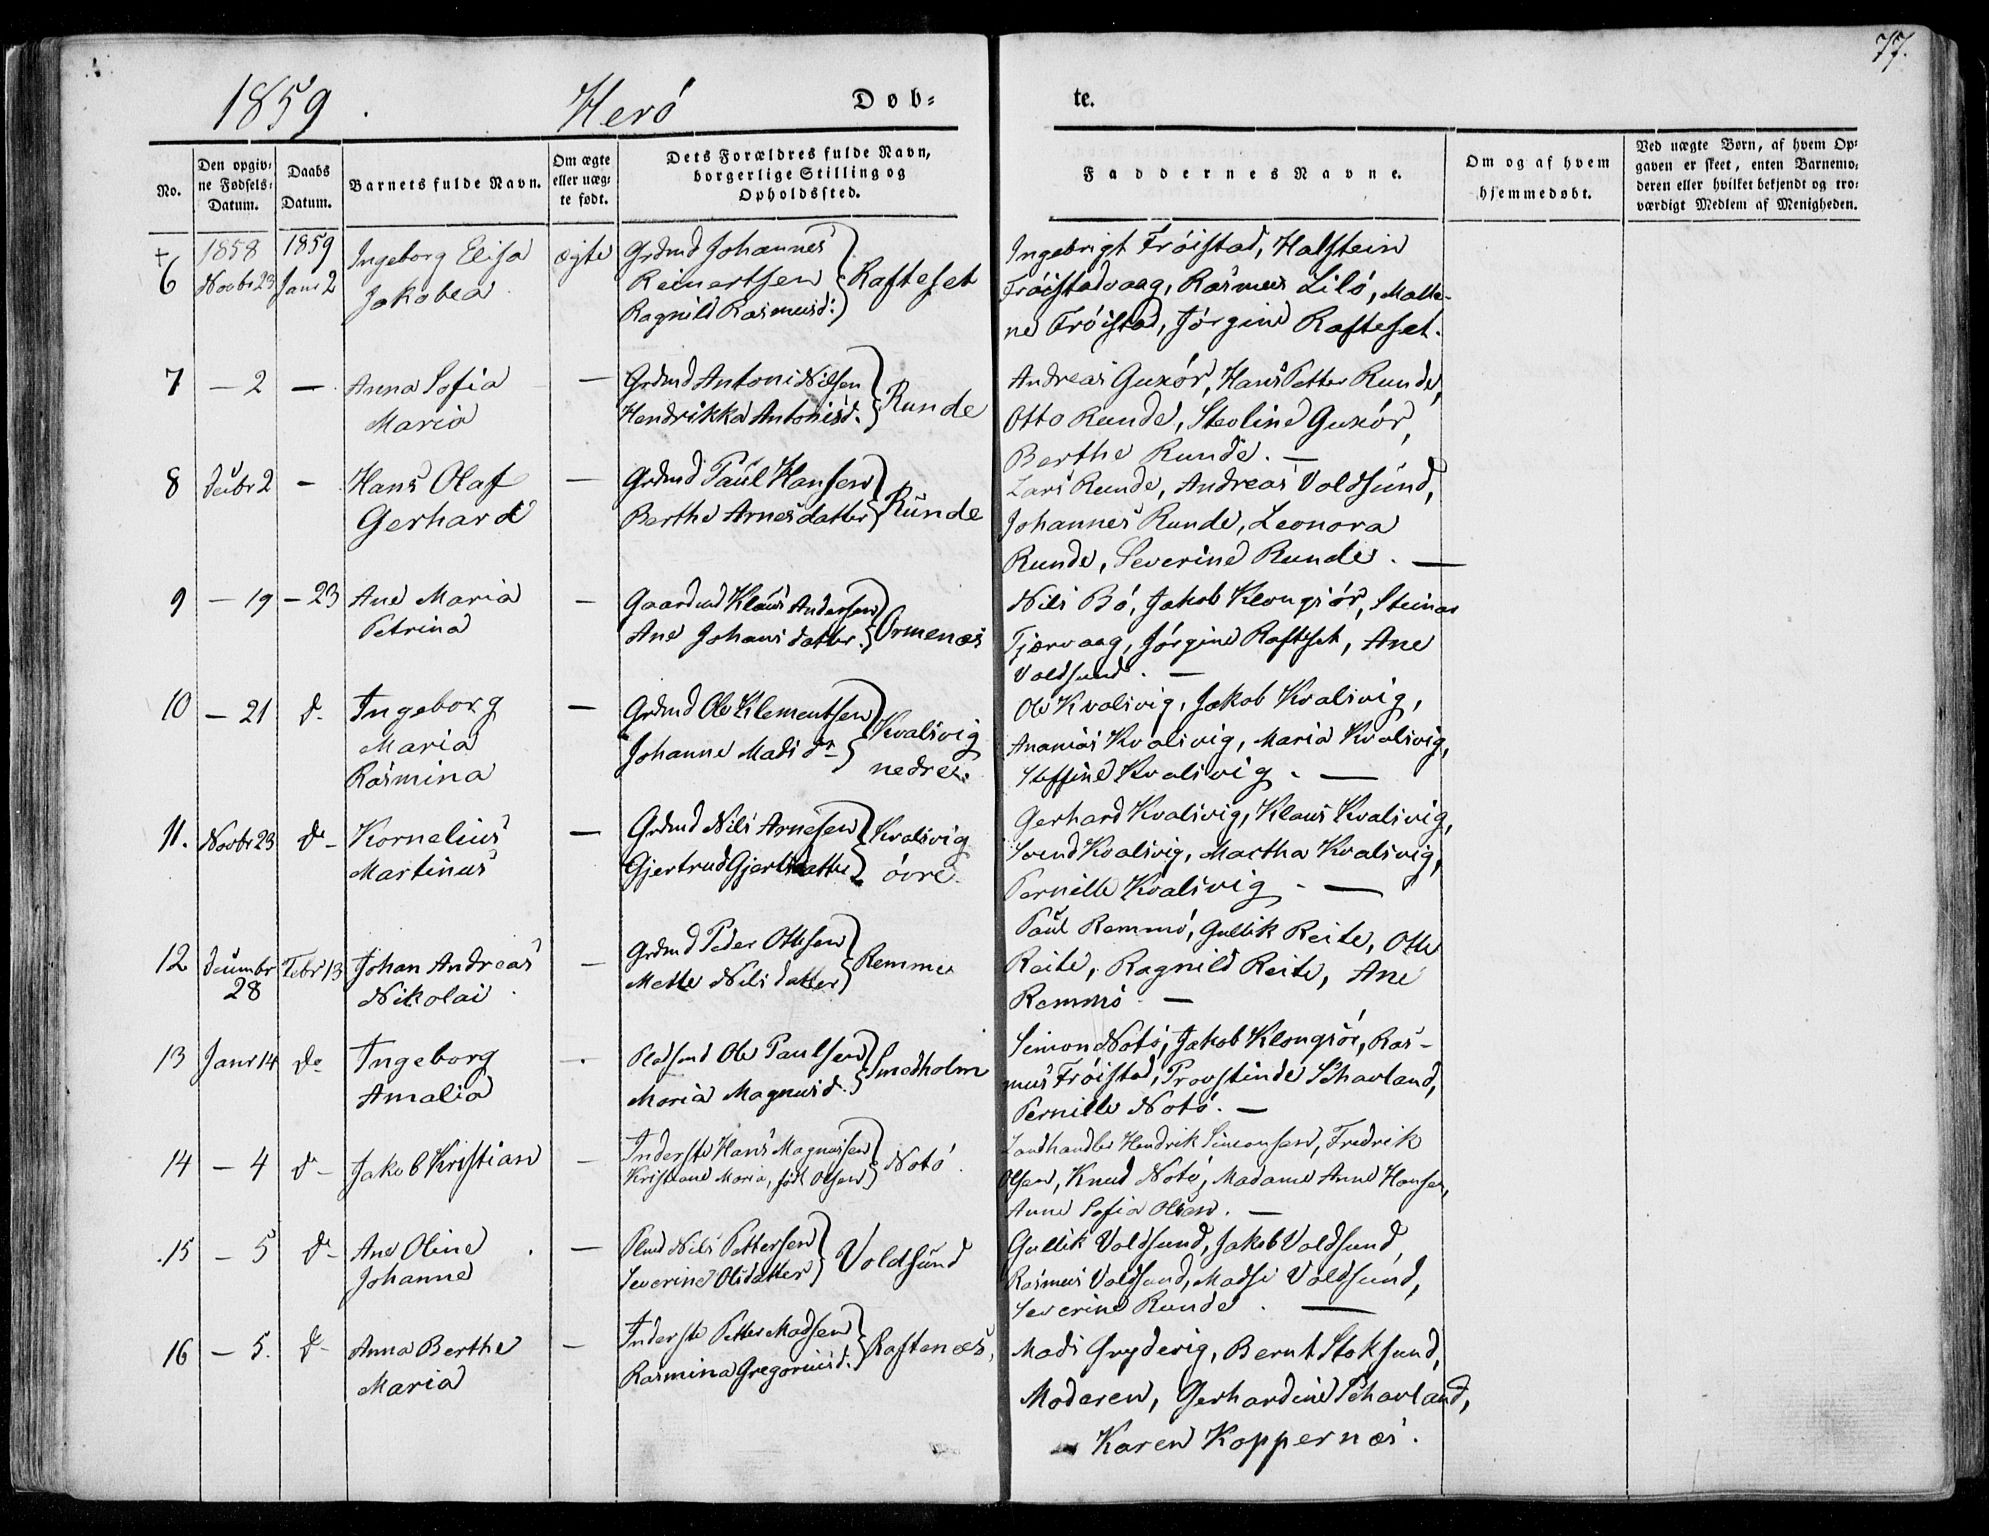 77.
1859. Herö Døb=
te.
No.
Den opgiv=
ne Fødsels=
Datum.
Daabs
Datum.
Barnets fulde Navn.
Om ægte
eller uæg=
te født.
Dets Forældres fulde Navn,
borgerlige Stilling og
Opholdssted.
Faddernes Navne.
Om og af hvem
hjemmedøbt.
Ved uægte Børn, af hvem Op=
gaven er skeet, enten Barnemo=
deren eller hvilket bekjendt og tro=
værdigt Medlem af Menigheden.
+
6
1858
Novbr 23
1859
Janr 2
Ingeborg Elisa
Jakobea
ægte
Grdmd Johannes
Reinertsen
Ragnild Rasmusd:
Rafteset
Ingebrigt Fröistad, Halstein
Fröistadvaag, Rasmus Lilö, Malle-
ne Fröistad, Jörgine Rafteset.
7
— 2
—
Anna Sofia
Maria
—
Grdmd Antoni Nilsen
Hendrikka Antonisd.
Runde
Andreas Guxör, Hans Petter Runde,
Otto Runde, Steoline Guxör,
Berthe Runde. —
8
Decbr 2
—
Hans Olaf
Gerhard
—
Grdmd Paul Hansen
Berthe Arnesdatter
Runde
Lars Runde, Andreas Voldsund,
Johannes Runde, Leonora
Runde, Severine Runde. —
9
— 19
— 23
Ane Maria
Petrina
—
Gaardmd Klaus Andersen
Ane Johansdatter.
Ormenæs
Nils Bö, Jakob Klongsör, Steinar
Tjærvaag, Jörgine Rafteset, Ane
Voldsund. —
10
— 21
do
Ingeborg
Maria
Rasmina
—
Grdmd Ole Klementsen
Johanne Madsdr
Kvalsvig
nedre.
Ole Kvalsvig, Jakob Kvalsvig,
Ananias Kvalsvig, Maria Kvalsvig,
Steffine Kvalsvig. —
11.
Novbr 23
do
Kornelius
Martinus
—
Grdmd Nils Arnesen
Gjertrud Gjertsdatter
Kvalsvig
övre.
Gerhard Kvalsvig, Klaus Kvalsvig,
Svend Kvalsvig, Martha Kvalsvig,
Pernille Kvalsvig. —
12
Decembr
28
Febr 13
Johan Andreas
Nikolai
—
Grdmd Peder Ottesen
Mette Nilsdatter
Remmö
Paul Remmö, Gullik Reite, Otte
Reite, Ragnild Reite, Ane
Remmö. —
13
Janr 14
do
Ingeborg
Amalia
Pladsmd Ole Paulsen
Maria Magnusd.
Smedholm
Simon Notö, Jakob Klongsör, Ras-
mus Fröistad, Provstinde Schavland,
Pernille Notö. —
14
— 4
do
Jakob Kristian
—
Inderste Hans Magnussen
Kristiane Maria, født Olsen
Notö.
Landhandler Hendrik Simonsen, Fredrik
Olsen, Knud Notö, Madame Anne Hansen,
Anne Sofia Olsen. —
15
— 5
do
Ane Oline
Johanne
—
Plmd Nils Pettersen
Severine Olsdatter
Voldsund
Gullik Voldsund, Jakob Voldsund,
Rasmus Voldsund, Madsi Voldsund,
Severine Runde. —
16
— 5.
do
Anna Berthe
Maria
—
Inderste Petter Madsen
Rasmina Gregoriusd.
Raftenæs,
Mads Frydevig, Bernt Stoksund,
Moderen, Gerhardine Schavland,
Karen Koppernæs.